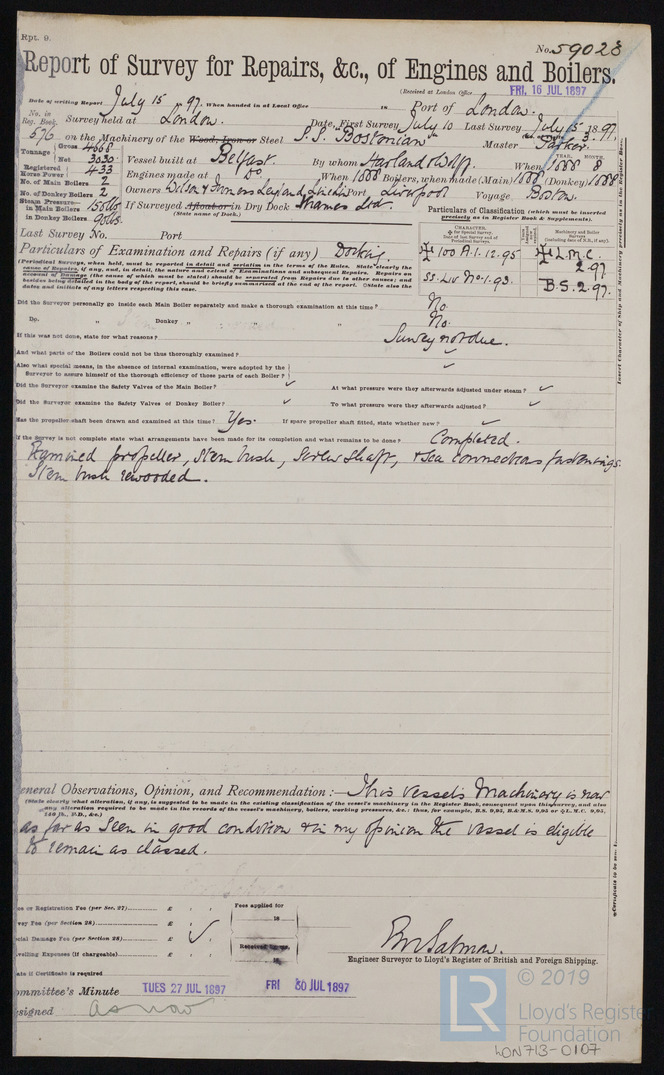 Rpt. 9.
No. 59028
Report of Survey for Repairs, &c., of Engines and Boilers.
(Received at London Office FRI, 16 JUL 1897
Date of writing Report July 15 1897. When handed in at Local Office 18 Port of London.
No. in Reg. Book. Survey held at London. Date, First Survey July 10 Last Survey July 15 1897
576 on the Machinery of the Wood, Iron or Steel S.S. "Bostonian" Master Parker.
Tonnage Gross 4668
Net 3030 Vessel built at Belfast. By whom Harland & Wolff. When 1888 8
YEAR. MONTH.
Registered Horse Power 433 Engines made at Do. When 1888 Boilers, when made (Main) 1888 (Donkey) 1888
No. of Main Boilers 2
No. of Donkey Boilers 2 Owners Port Liverpool Voyage Boston.
Steam Pressure in Main Boilers 150 lbs If Surveyed Afloat or in Dry Dock Thames
in Donkey Boilers 90 lbs. (State name of Dock.)
Particulars of Classification (which must be inserted precisely as in Register Book & Supplements).
Last Survey No. Port
Particulars of Examination and Repairs (if any) Docking.
(Periodical Surveys, when held, must be reported in detail and seriatim in the terms of the Rules. State clearly the
cause of Repairs, if any, and, in detail, the nature and extent of Examinations and subsequent Repairs. Repairs on
account of Damage (the cause of which must be stated) should be separated from Repairs due to other causes; and
besides being detailed in the body of the report, should be briefly summarised at the end of the report. State also the
dates and initials of any letters respecting this case.
CHARACTER.
for Special Survey.
Date of last Survey and of Periodical Surveys
Machinery and Boiler Surveys (including date of N.B., if any).
100 A.1. 12.95
L.M.C. 2.97
SS. Liv No.1.93.
B.S. 2.97.
Insert Character of Ship and Machinery precisely as in the Register Book.
Did the Surveyor personally go inside each Main Boiler separately and make a thorough examination at this time? No
Do. " Donkey " " " No.
If this was not done, state for what reasons? Survey not due.
And what parts of the Boilers could not be thus thoroughly examined?
Also what special means, in the absence of internal examination, were adopted by the
Surveyor to assure himself of the thorough efficiency of those parts of each Boiler?
Did the Surveyor examine the Safety Valves of the Main Boiler? At what pressure were they afterwards adjusted under steam?
Did the Surveyor examine the Safety Valves of Donkey Boiler? To what pressure were they afterwards adjusted?
Has the propeller shaft been drawn and examined at this time? Yes. If spare propeller shaft fitted, state whether new?
If the Survey is not complete state what arrangements have been made for its completion and what remains to be done? Completed.
Examined propeller, Stern bush, Screw shaft, & Sea connections fastenings.
Stern bush rewooded.
General Observations, Opinion, and Recommendation:— This vessels Machinery is now
(State clearly what alteration, if any, is suggested to be made in the existing classification of the vessel's machinery in the Register Book, consequent upon this survey, and also
any alteration required to be made in the records of the vessel's machinery, boilers, working pressures, &c.: thus, for example, B.S. 9,95, B.&M.S. 9,95 or L.M.C. 9,95,
140 lb., F.D., &c.)
as far as seen in good condition & in my opinion the vessel is eligible
to remain as classed.
ee or Registration Fee (per Sec. 27) £ : :
vey Fee (per Section 28) £ : :
ecial Damage Fee (per Section 28) £ : :
velling Expenses (if chargeable) £ : :
Fees applied for
18
Received by me,
18
ate if Certificate is required
Engineer Surveyor to Lloyd's Register of British and Foreign Shipping.
ommittee's Minute TUES 27 JUL 1897 FRI 30 JUL 1897
signed as now
© 2019
LR
Lloyd's Register
Foundation
LON713-0107